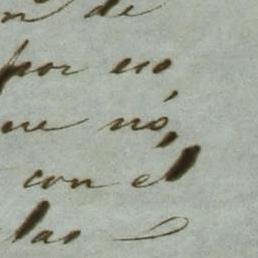 n de
por eso
ue nó,
con el
las